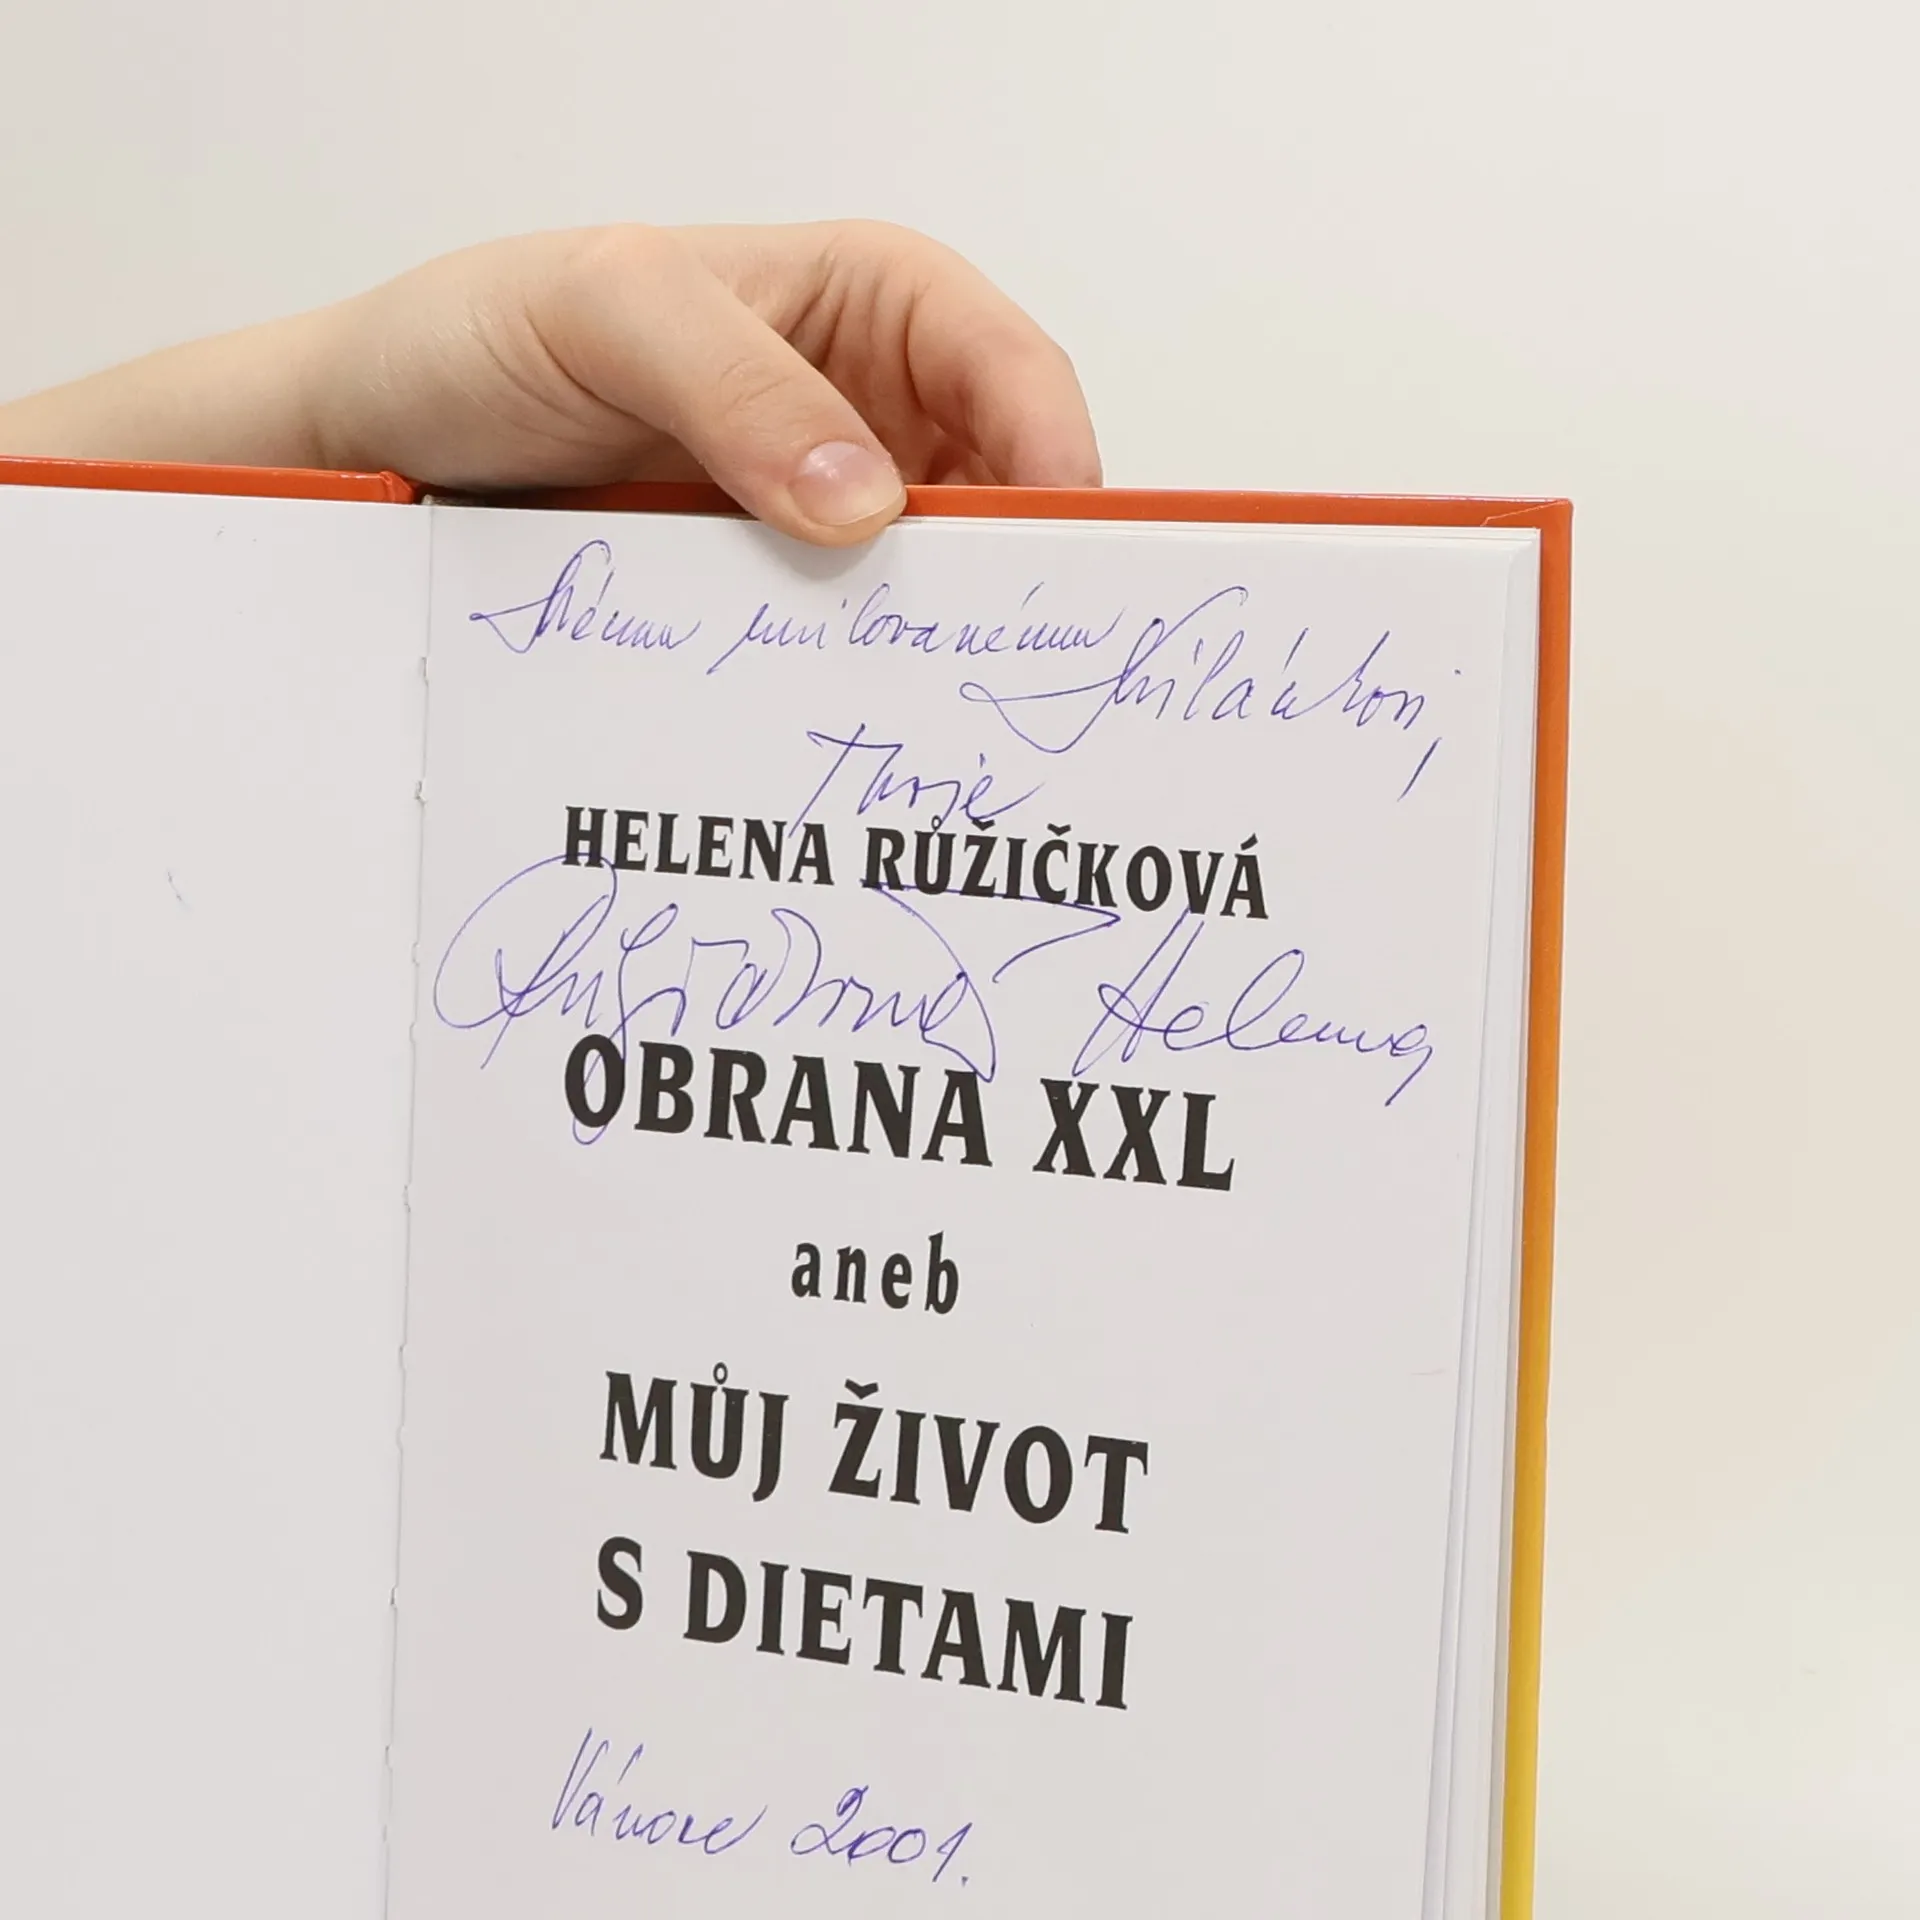 Mému milovanému
Miláčkovi,
Tvoje
HELENA RŮŽIČKOVÁ
Růžičková Helena
OBRANA XXL
aneb
MŮJ ŽIVOT
S DIETAMI
Vánoce 2001.